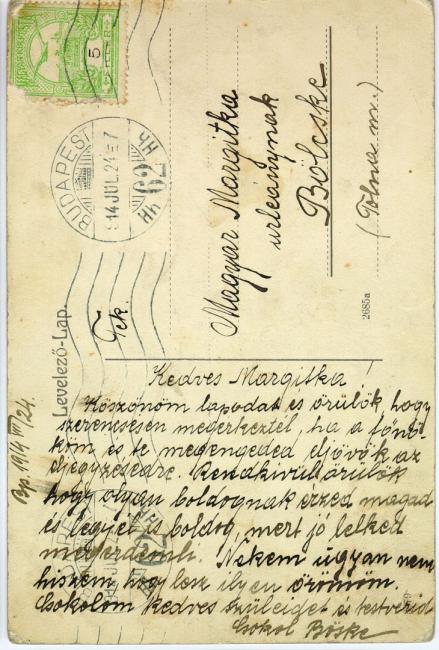 5
BUDAPEST 62
914 JUL. 24 E 7
4H 62 4H
Levelező-Lap.
Tek.
Magyar Margitka
urleánynak
Bölcske
(Tolna m.)
2685a
Bp. 1914 VII/24.
Kedves Margitka!
Köszönöm lapodat és örülök, hogy
szerencsésen megérkeztél, ha a főnö-
köm és te megengeded eljövök az
eljegyzésedre. Rendkívül örülök
hogy olyan boldognak érzed magad
és legyél is boldog, mert jó lelked
megérdemli. Nekem ugyan nem
hiszem hogy lesz ilyen örömöm.
Csokolom kedves szüleidet és testvéreid
Csokol Böske